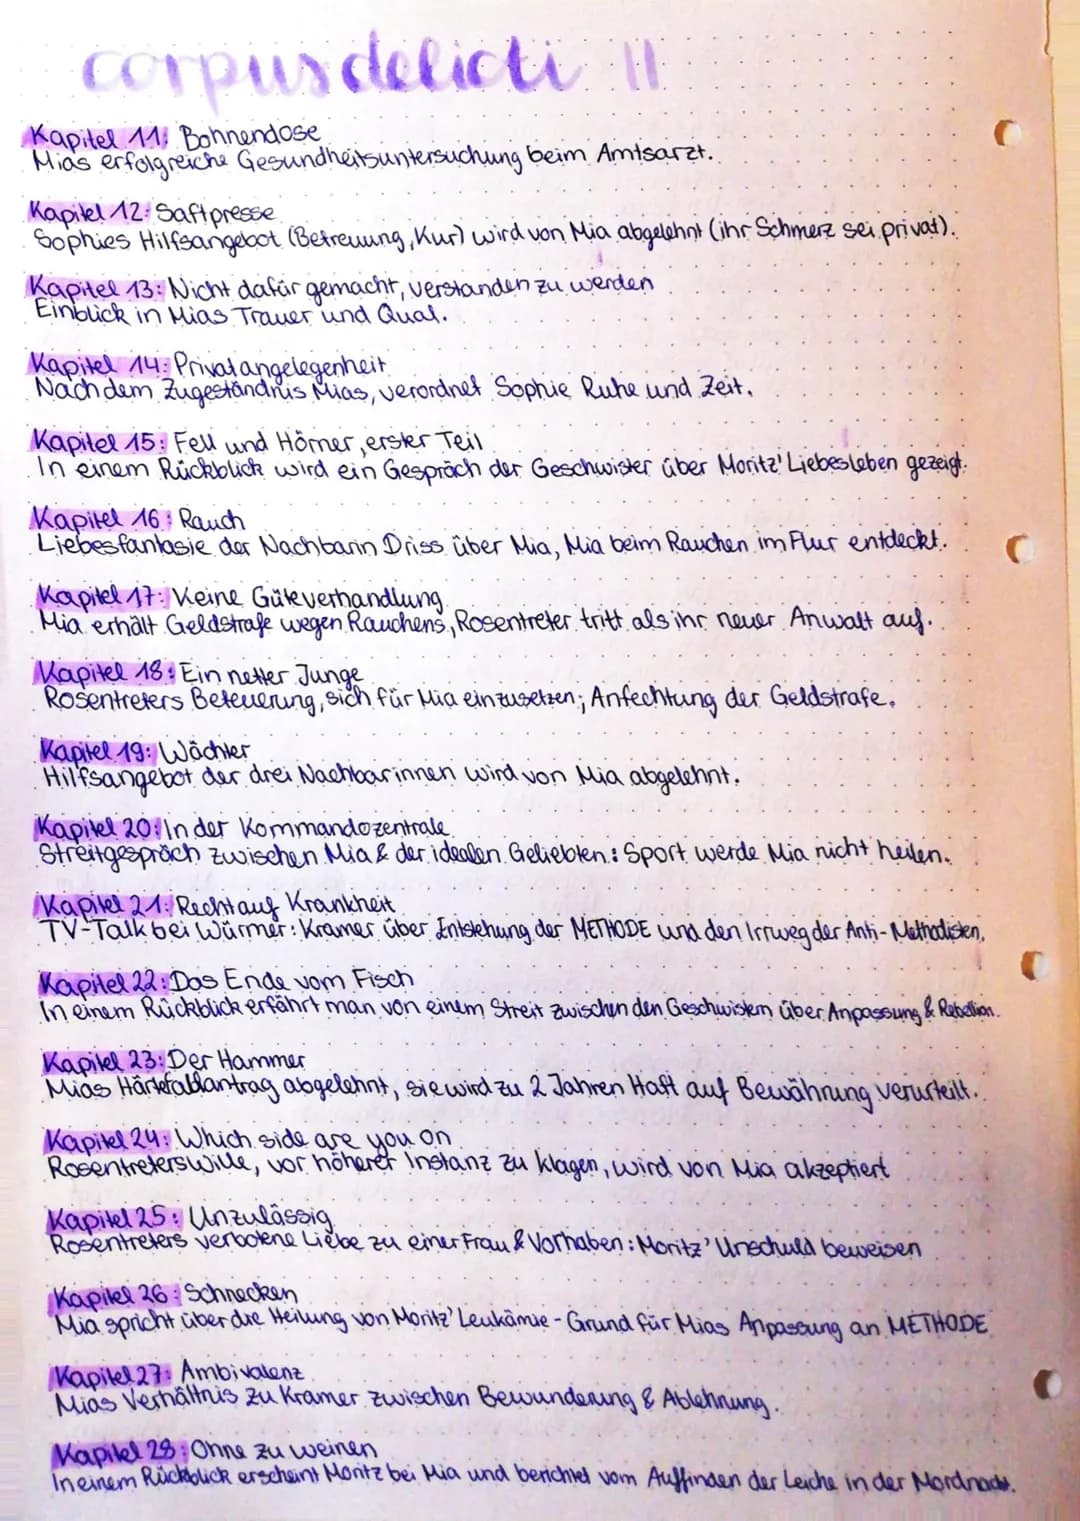 corpus delicti II
Kapitel 11: Bohnendose
Mias erfolgreiche Gesundheitsuntersuchung beim Amtsarzt.
Kapitel 12: Saftpresse
Sophies Hilfsangebot (Betreuung, Kur) wird von Mia abgelehnt (ihr Schmerz sei privat).
Kapitel 13: Nicht dafür gemacht, verstanden zu werden
Einblick in Mias Trauer und Qual.
Kapitel 14: Privatangelegenheit
Nachdem Zugeständnis Mias, verordnet Sophie Ruhe und Zeit.
Kapitel 15: Fell und Hörner, erster Teil
In einem Rückblick wird ein Gespräch der Geschwister über Moritz' Liebesleben gezeigt.
Kapitel 16: Rauch
Liebesfantasie der Nachbarin Driss über Mia, Mia beim Rauchen im Flur entdeckt.
Kapitel 17: Keine Güteverhandlung
Mia erhält Geldstrafe wegen Rauchens, Rosentreter tritt als ihr neuer Anwalt auf.
Kapitel 18: Ein netter Junge
Rosentreters Beteuerung, sich für Mia einzusetzen; Anfechtung der Geldstrafe.
Kapitel 19: Wächter
Hilfsangebot der drei Nachbarinnen wird von Mia abgelehnt.
Kapitel 20: In der Kommandozentrale
Streitgespräch zwischen Mia & der idealen Geliebten: Sport werde Mia nicht heilen.
Kapitel 21: Recht auf Krankheit
TV-Talk bei Würmer: Kramer über Entstehung der METHODE und den Irrweg der Anti-Methodisten.
Kapitel 22: Das Ende vom Fisch
In einem Rückblick erfährt man von einem Streit zwischen den Geschwistern über Anpassung & Rebellion.
Kapitel 23: Der Hammer
Mias Härtefallantrag abgelehnt, sie wird zu 2 Jahren Haft auf Bewährung verurteilt.
Kapitel 24: Which side are you on
Rosentreters Wille, vor höherer Instanz zu klagen, wird von Mia akzeptiert
Kapitel 25: Unzulässig
Rosentreters verbotene Liebe zu einer Frau & Vorhaben: Moritz' Unschuld beweisen
Kapitel 26: Schnecken
Mia spricht über die Heilung von Moritz' Leukämie - Grund für Mias Anpassung an METHODE
Kapitel 27: Ambivalenz
Mias Verhältnis zu Kramer zwischen Bewunderung & Ablehnung.
Kapitel 28: Ohne zu weinen
In einem Rückblick erscheint Moritz bei Mia und berichtet vom Auffinden der Leiche in der Mordnacht.